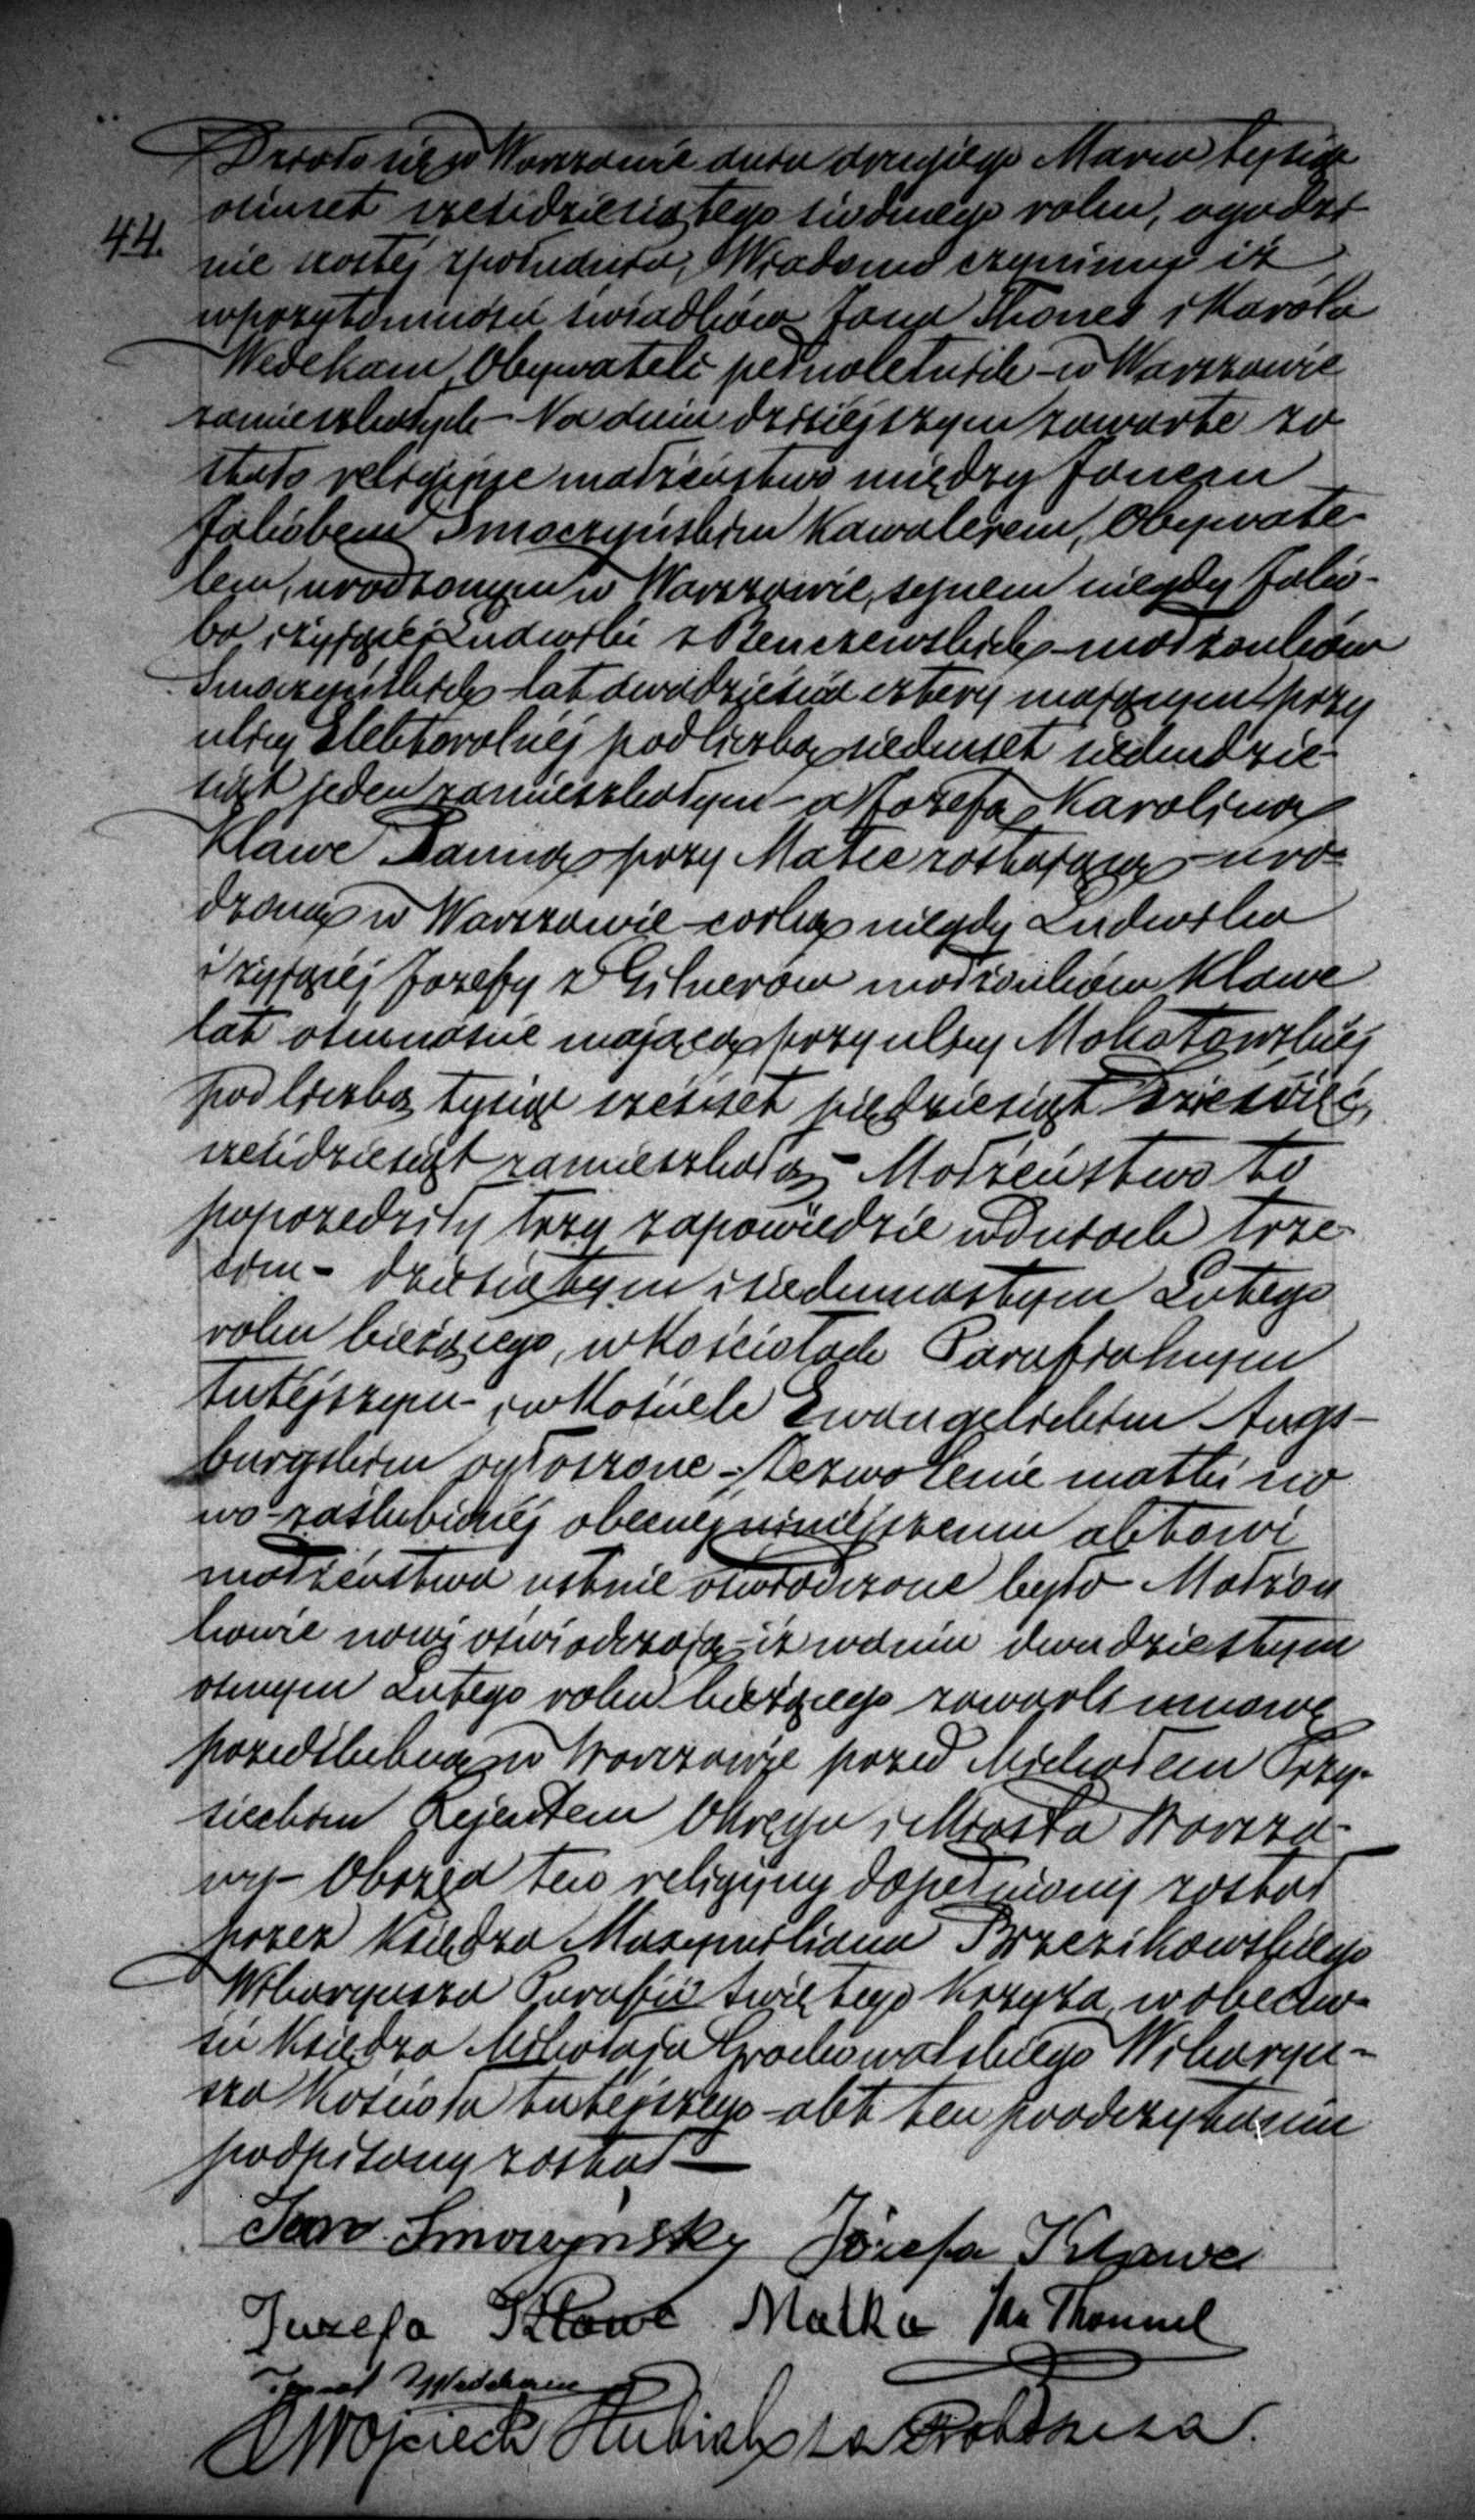 Działo się w Warszawie dnia drugiego Marca tysiąc
ośmset sześćdziesiątego siódmego roku, o godzi
44. nie szóstej z południa, Wiadomo czynimy iż
w przytomności świadków Jana Thomel i Karola
Wedekam Obywateli pełnoletnich w Warszawie
zamieszkałych – Na dniu dzisiejszym zawarte zo
stało religijne małżeństwo między Janem
Jakóbem Smoczyńskim Kawalerem, Obywate-
lem, urodzonym w Warszawie, synem niegdy Jakó-
ba i żyjącej Ludwiki z Renczewskich małżonków
Smoczyńskich lat dwadzieścia cztery mającym przy
ulicy Elektoralnej pod liczbą siedmset siedmdzie-
siąt jeden zamieszkałym – a Józefą Karoliną
Klawe Panną przy Matce zostającą – uro-
dzoną w Warszawie – córką niegdy Ludwika
i żyjącej Józefy z Gilnerów małżonków Klawe
lat ośmnaście mającą przy ulicy Mokotowskiej
pod liczbą tysiąc sześćset pięćdziesiąt dziewięć,
sześćdziesiąt zamieszkałą – Małżeństwo to
poprzedziły trzy zapowiedzie w dniach trze-
cim – dziesiątym i siedemnastym Lutego
roku bieżącego, w Kościołach Parafialnym
tutejszym – i w Kościele Ewangelickim Augs-
burgskim ogłoszone – Zezwolenie matki no
wo-zaślubionej obecnej niniejszemu aktowi
małżeństwa ustnie oświadczone było – Małżon
kowie nowi oświadczają – iż w dniu dwudziestym
ósmym Lutego roku bieżącego zawarli umowę
przedślubną w Warszawie przed Michałem Przy-
sieckim Rejentem Okręgu i Miasta Warsza-
wy – Obrzęd ten religijny dopełniony został
przez Księdza Maxymiliana Brzezikowskiego
Wikaryusza Parafii Świętego Krzyża, w obecno-
ści Księdza Mikołaja Grochowalskiego Wikaryu-
sza Kościoła tutejszego – akt ten po odczytaniu
podpisany został –
Jan Smoczyńsky Józefa Klawe
Juzefa Klawe Matka Jan Thommel
Wedekam
X Wojciech za Proboszcza